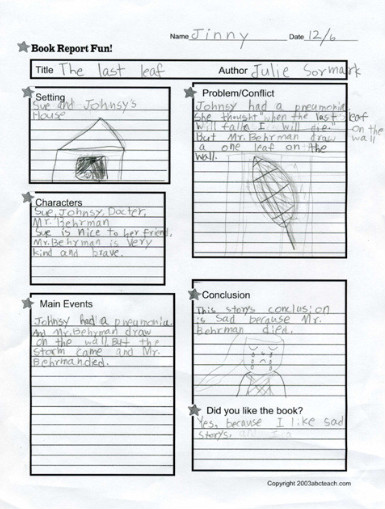 Name Jinny Date 12/6
Book Report Fun!
Title The last leaf Author Julie Sormark
Setting
Sue and Johnsy's
House
Problem/Conflict
Johnsy had a pneumonia
She thought "when the last leaf
will falls I will die."
But Mr. Behrman draw on the wall
a one leaf on the
wall.
Characters
Sue, Johnsy, Docter,
Mr. Behrman
Sue is nice to her friend,
Mr. Behrman is very
kind and brave.
Main Events
Johnsy had a pneumonia.
And Mr. Behrman draw
on the wall. But the
storm came and Mr.
Behrman died.
Conclusion
This story's conclusion
is sad because Mr.
Behrman died.
Did you like the book?
Yes, because I like sad
storys.
Copyright 2003abcteach.com